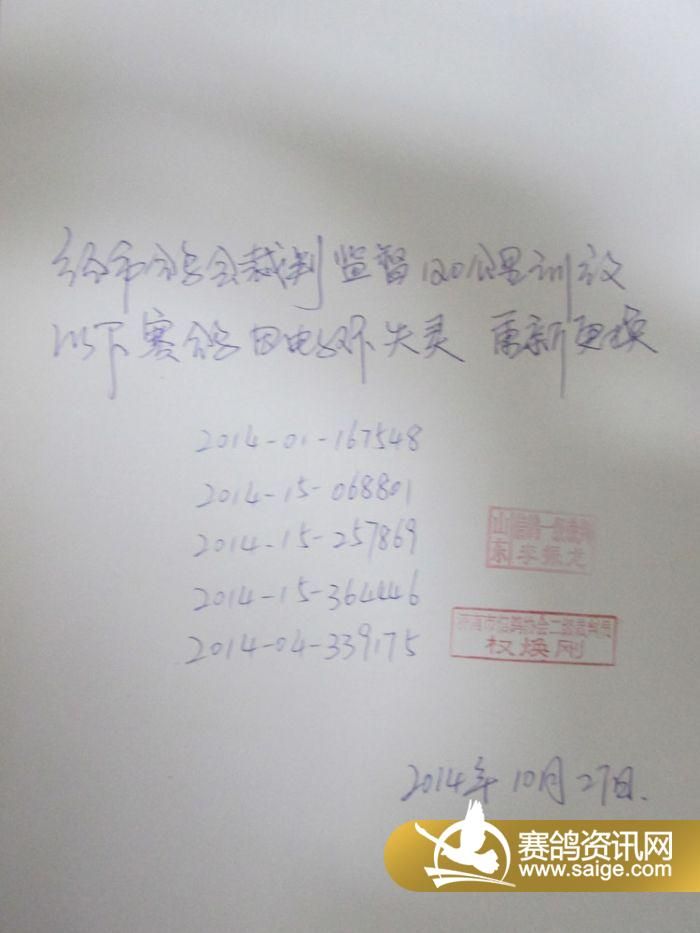 经市鸽会裁判监督120公里训放
以下赛鸽因电子环失灵 重新更换
2014-01-167548
2014-15-068801
2014-15-257869
2014-15-364446
2014-04-339175
山东
李振龙
济南市信鸽协会二级裁判员
权焕刚
2014年10月27日.
赛鸽资讯网
www.saige.com